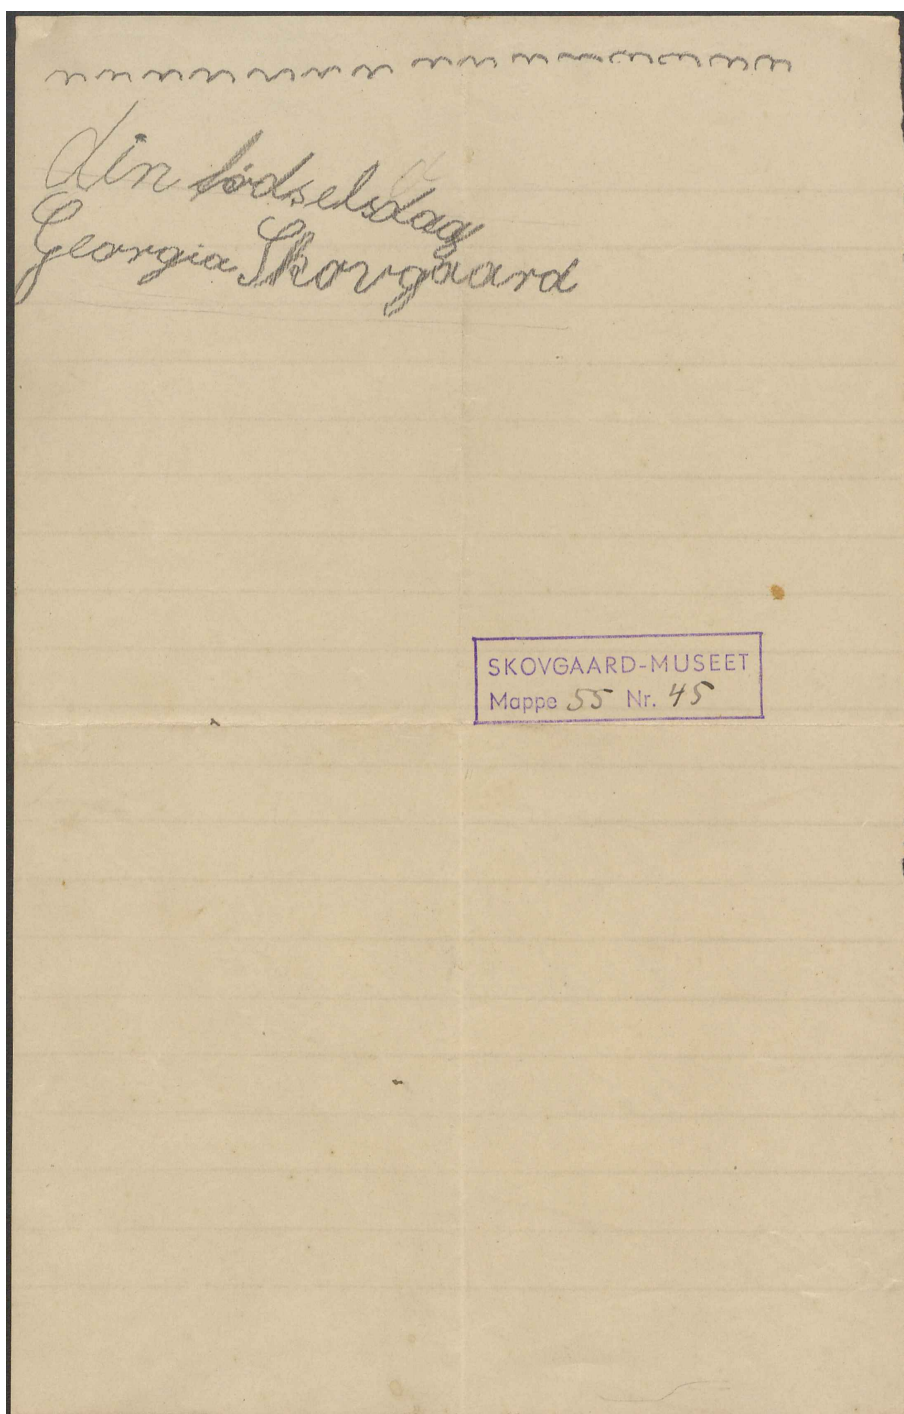 din fødselsdag
Georgia Skovgaard
SKOVGAARD-MUSEET
Mappe 55 Nr. 45